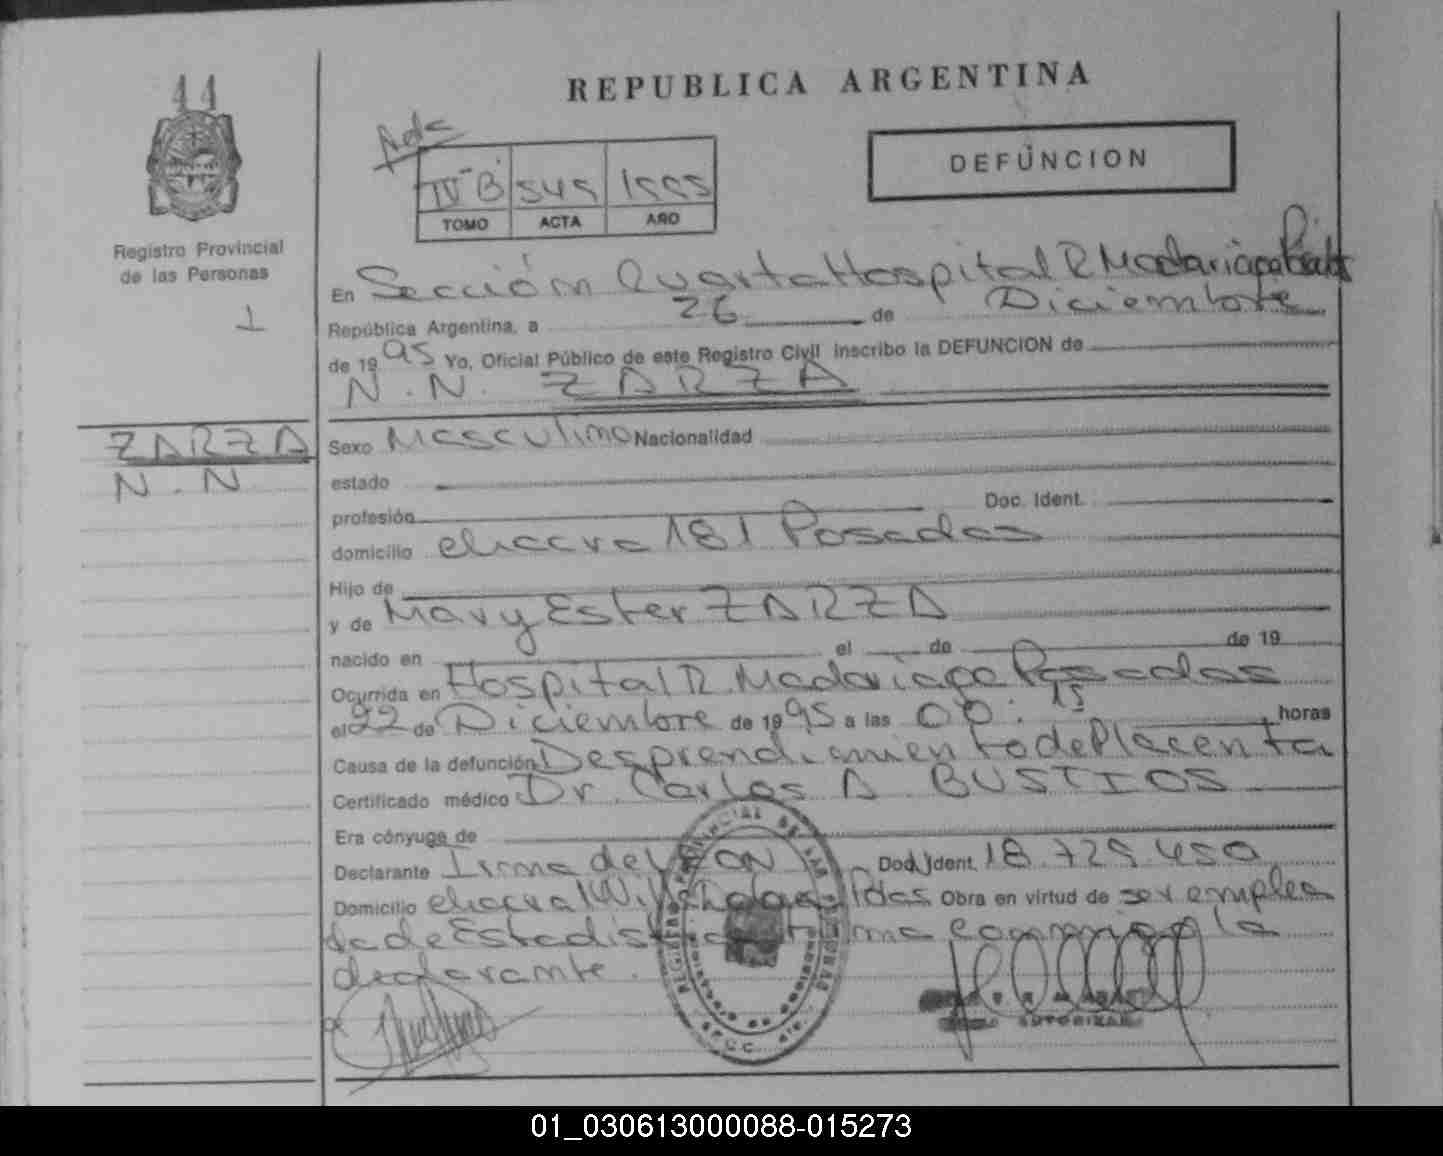 44
REPUBLICA ARGENTINA
Pdas
IV°B 545 1995
TOMO ACTA AÑO
DEFUNCION
Registro Provincial
de las Personas
1
En Sección Cuarta Hospital R Madariaga
República Argentina, a 26 de Diciembre
de 1995 Yo, Oficial Público de este Registro Civil inscribo la DEFUNCION de
N.N. ZARZA
ZARZA
N.N
Sexo Masculino Nacionalidad
estado
profesión Doc. Ident.
domicilio chacra 181 Posadas
Hijo de
y de Mary Ester ZARZA
nacido en el de de 19
Ocurrida en Hospital R. Madariaga Posadas
el 22 de Diciembre de 1995 a las 00:15 horas
Causa de la defunción Desprendimiento de Placenta
Certificado médico Dr. Carlos A BUSTIOS
Era cónyuge de
Declarante Irma de Doc. Ident. 18.725.450
Domicilio chacra Pdas Obra en virtud de ser emplea
da de Estadística firma conmigo la
declarante.
REGISTRO PROVINCIAL DE LAS PERSONAS
MINISTERIO DE GOBIERNO
01_030613000088-015273